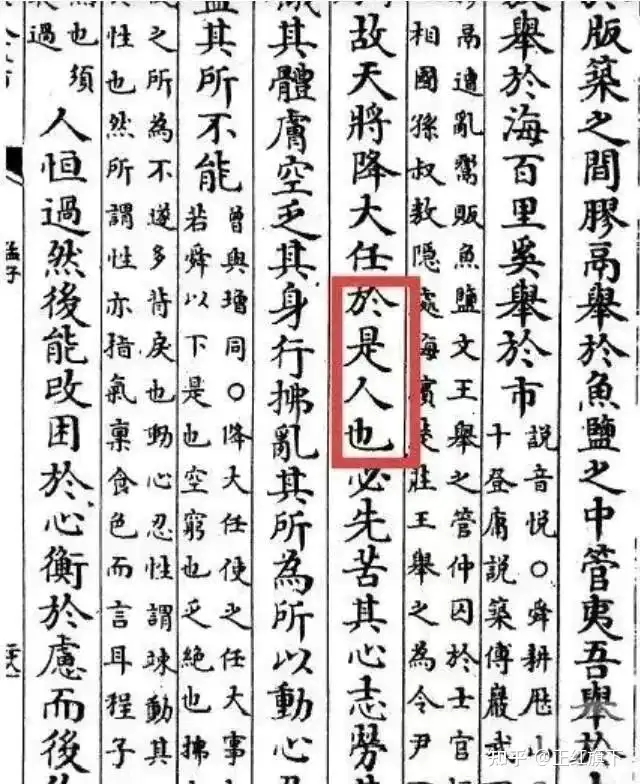 於版築之間膠鬲舉於魚鹽之中管夷吾舉於
舉於海百里奚舉於市
說音悅〇舜耕歷山
十登庸說築傅巖武
鬲遭亂鬻販魚鹽文王舉之管仲囚於士官
相國孫叔敖隱處海濱楚莊王舉之為令尹
故天將降大任於是人也必先苦其心志勞其
其體膚空乏其身行拂亂其所為所以動心忍
益其所不能
曾與增同〇降大任使之任大事
若舜以下是也空窮也乏絕也拂
之所為不遂多背戾也動心忍性謂竦動其
性也然所謂性亦指氣稟食色而言耳程子
也須
過
人恒過然後能改困於心衡於慮而後
孟子
知乎 @正红旗下